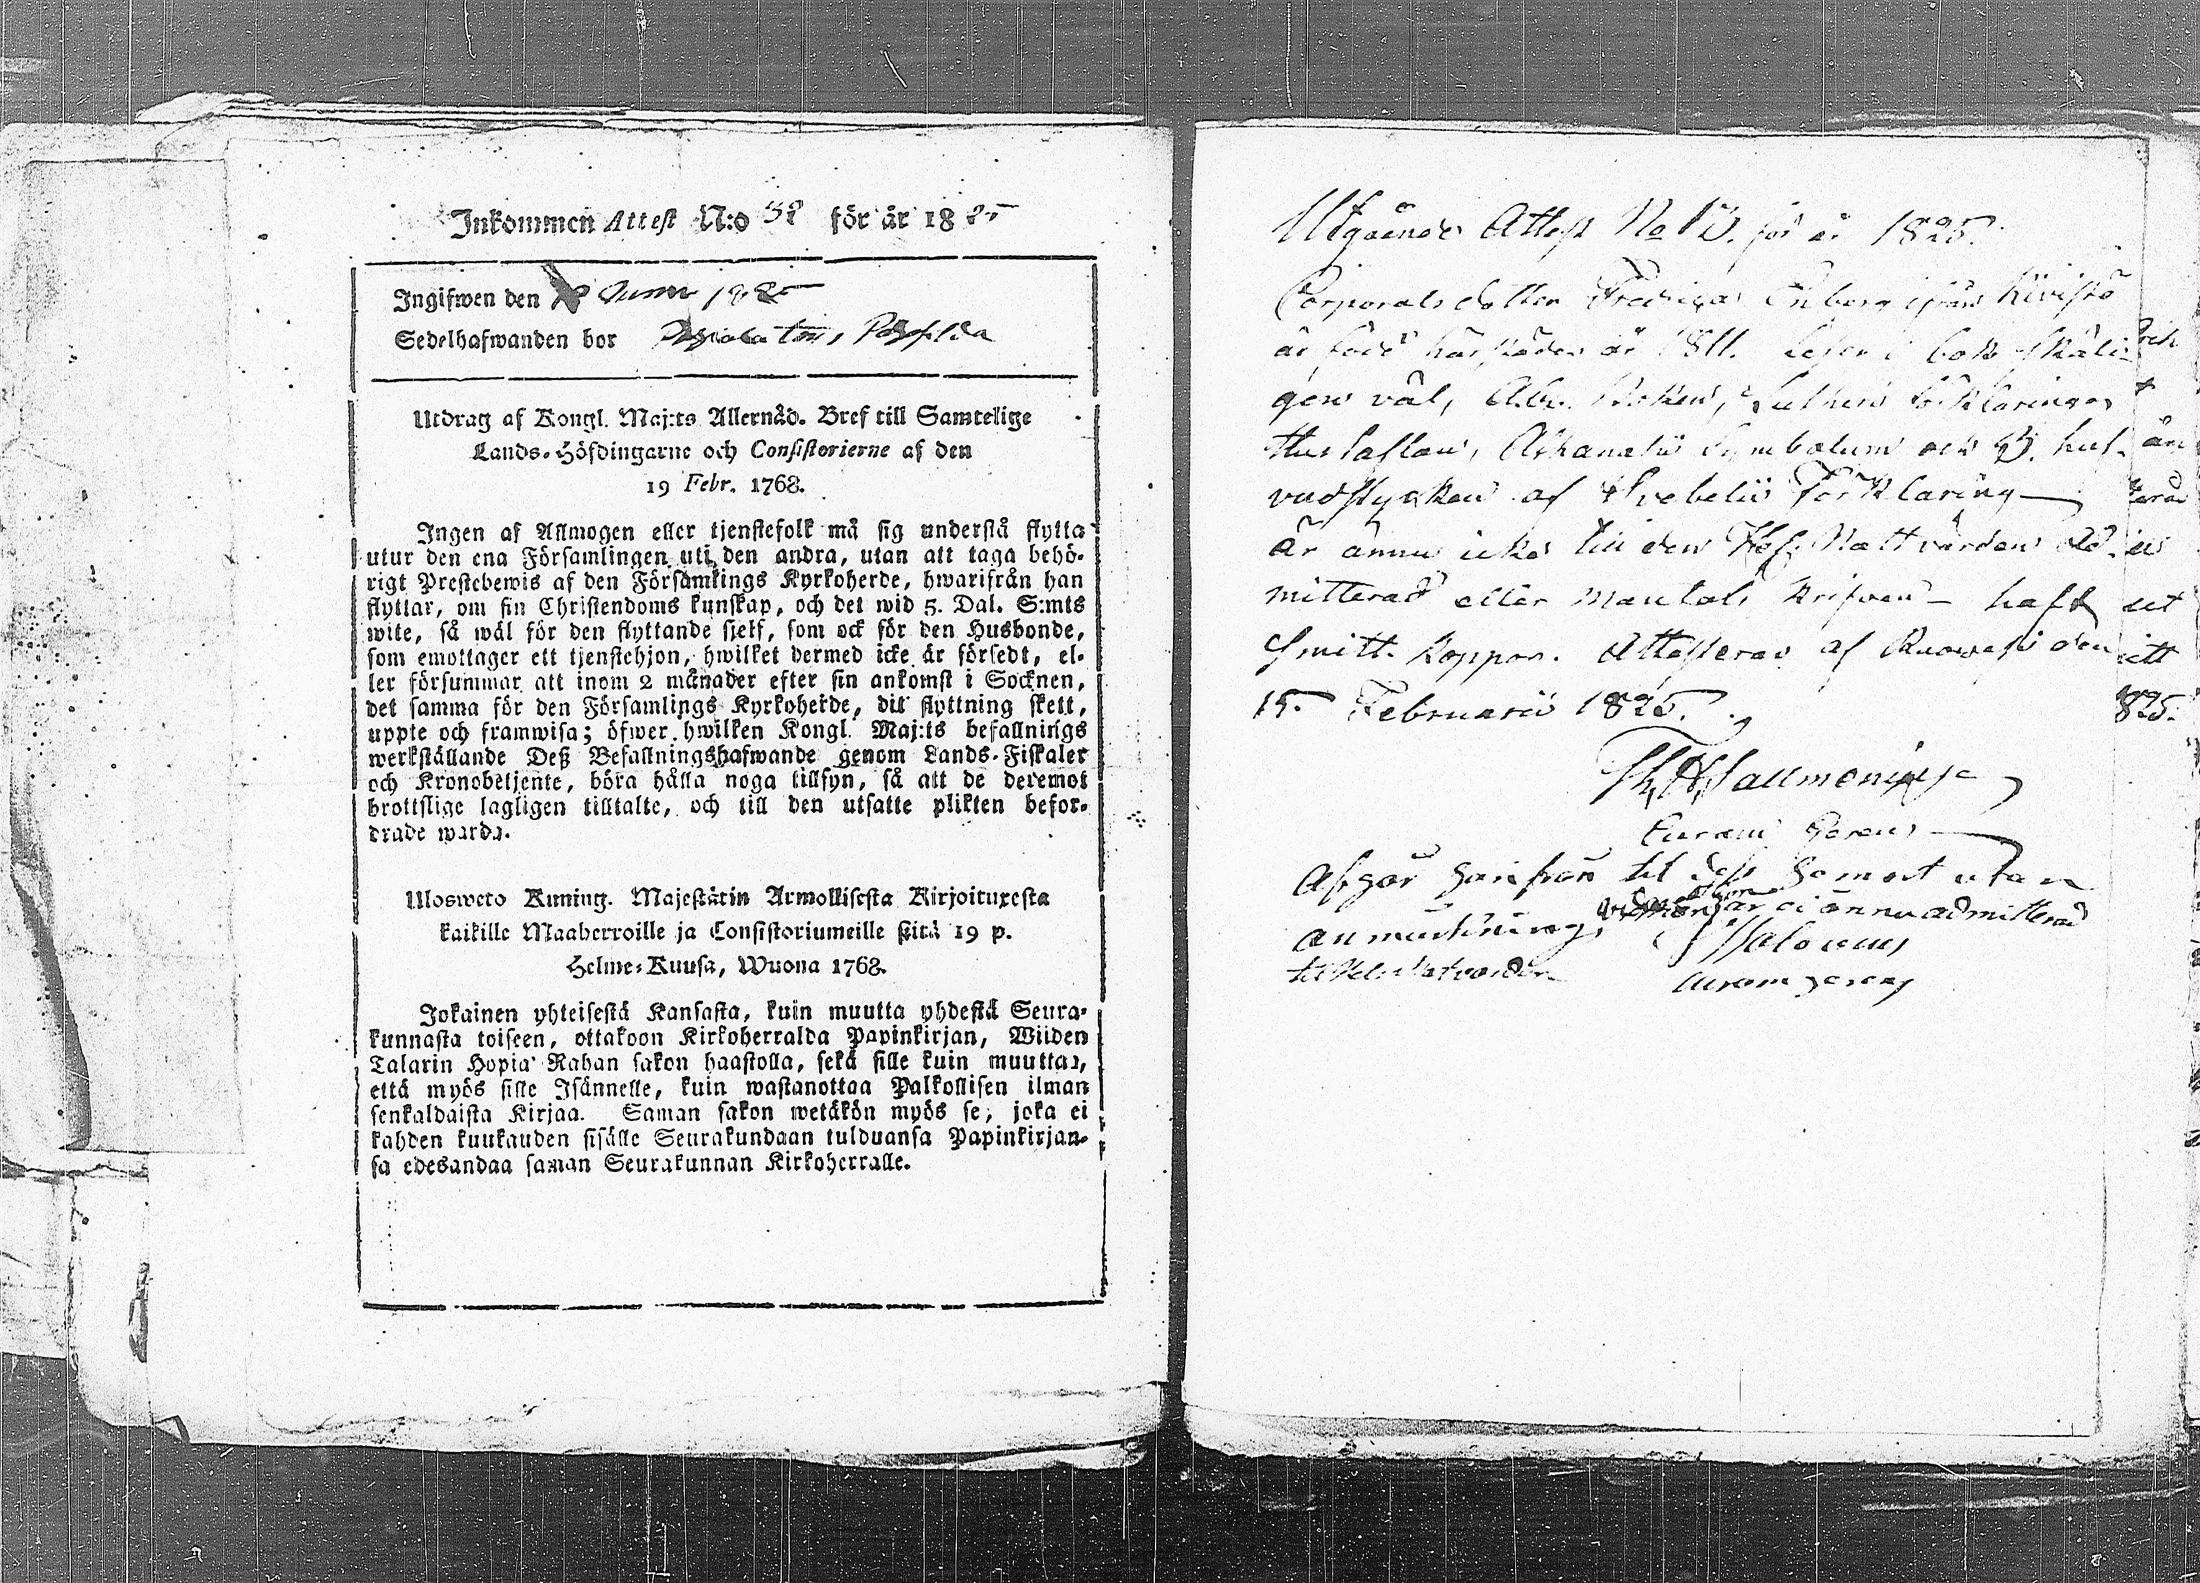 Inkommen Attest N:o 52 för år 1825
Ingifwen den Junii 1825
Sedelhafwanden bor
Utdrag af Kongl. Maj:ts Allernåd. Bref till Samtelige
Lands-Höfdingarne och Consistorierne af den
19 Febr. 1763.
Ingen af Allmogen eller tjenstefolk må sig understå flytta
utur den ena Församlingen uti den andra, utan att taga behö-
rigt Prestebewis af den Församlings Kyrkoherde, hwarifrån han
flyttar, om sin Christendoms kunskap, och det wid 5. Dal. S:mts
wite, så wäl för den flyttande sjelf, som ock för den Husbonde,
som emottager ett tjenstehjon, hwilket dermed icke är försedt, el-
ler försummar att inom 2 månader efter sin ankomst i Socknen,
det samma för den Församlings Kyrkoherde, dit flyttning skett,
uppte och framwisa; öfwer hwilken Kongl. Maj:ts befallnings
werkställande Deß Befallningshafwande genom Lands-Fiskaler
och Kronobetjente, böra hålla noga tillsyn, så att de deremot
brottslige lagligen tilltalte, och till den utsatte plikten befor-
drade warda.
Ulosweto Kuning. Majestätin Armollisesta Kirjoituxesta
kaikille Maaherroille ja Consistoriumeille siitä 19 p.
Helme-Kuusa, Wuona 1763.
Jokainen yhteisestä Kansasta, kuin muutta yhdestä Seura-
kunnasta toiseen, ottakoon Kirkoherralda Papinkirjan, Wiiden
Talarin Hopia Rahan sakon haastolla, sekä sille kuin muuttaa,
että myös sille Isännelle, kuin wastanottaa Palkollisen ilman
senkaldaista Kirjaa. Saman sakon wetäkön myös se, joka ei
kahden kuukauden sisälle Seurakundaan tulduansa Papinkirjan-
sa edesandaa saman Seurakunnan Kirkoherralle.
Utgående Attest No 13. för år 1825.
Corporals dotter Fredrica Enberg ifrån Kivistö
är född härstädes år 1811. Läser i bok skäli-
gen väl, Abc. boken, Lutheri förklaringar
Hustaflan, Athanasii Symbolum och 3. huf-
vudstycken af Svebelii Förklaring
är ännu icke till den H. Nattvarden ad-
mitterad eller Mantals skrifven - haft
Smitt-koppor. Attesteras af Ruowesi den
15. Februarii 1825.
Curam Gerens
Afgår härifrån til dess hemort utan
anmärkning, är ei ännu admitterad
Curam gerens